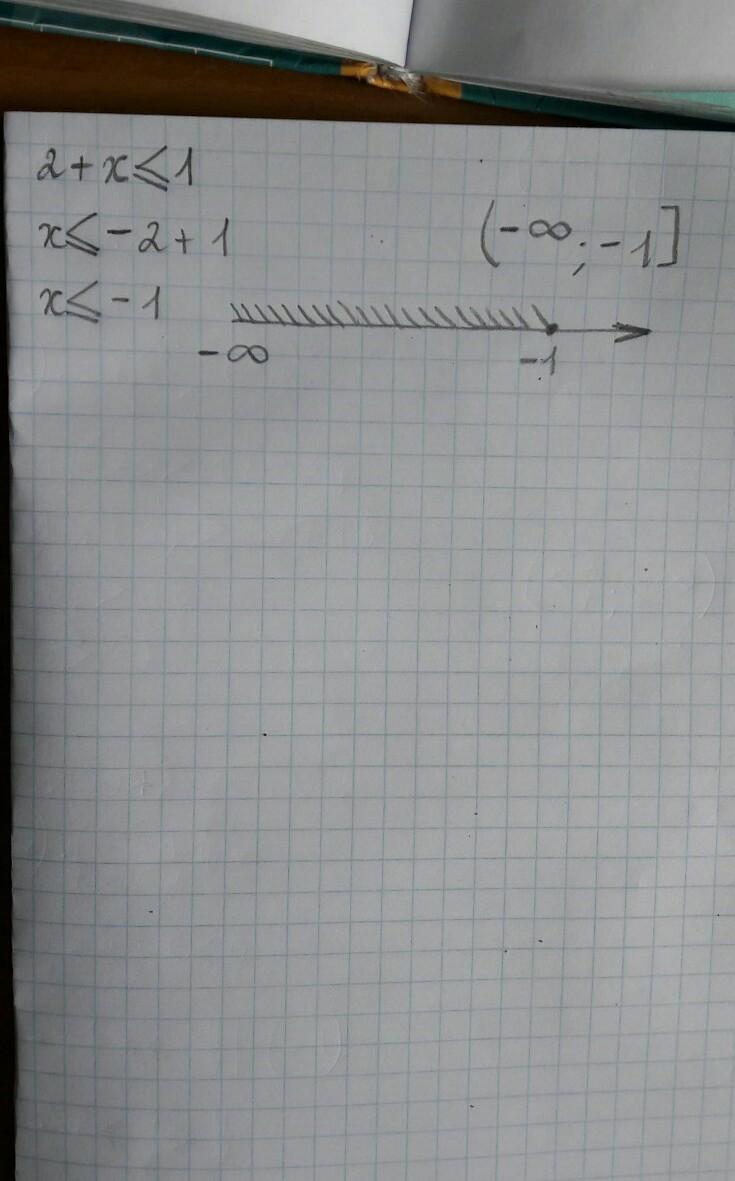 2 + x ⩽ 1
x ⩽ -2 + 1
(-∞; -1]
x ⩽ -1
-∞ -1